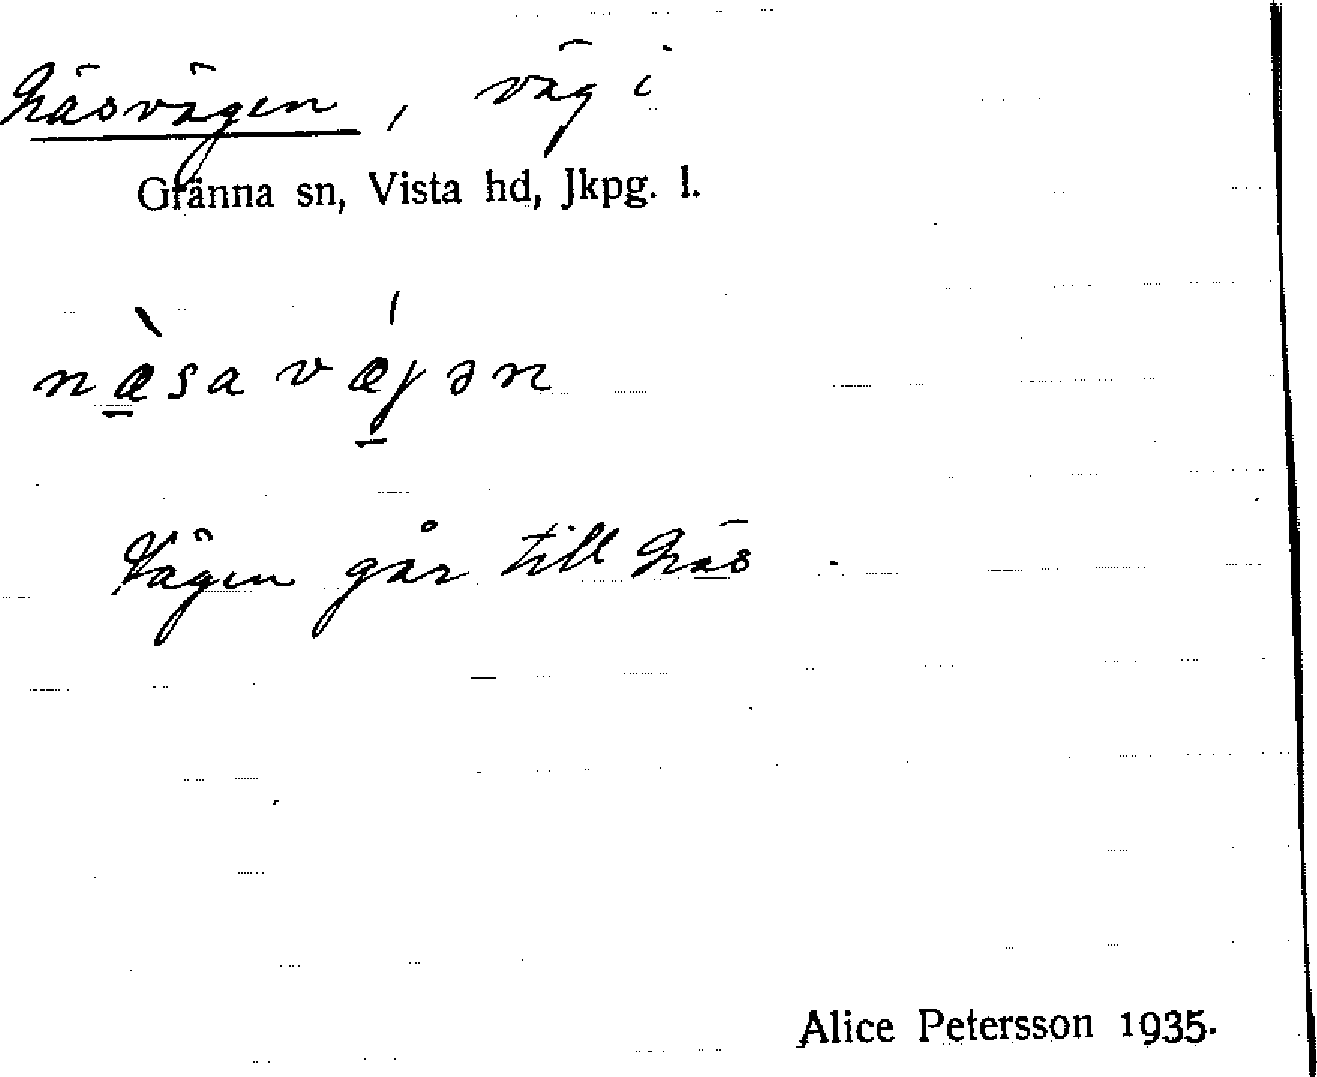 Näsvägen, väg i
Gränna sn, Vista hd, Jkpg. l.
næ̠̀sa vǽ̠jən
Vägen går till Näs
Alice Petersson 1935.